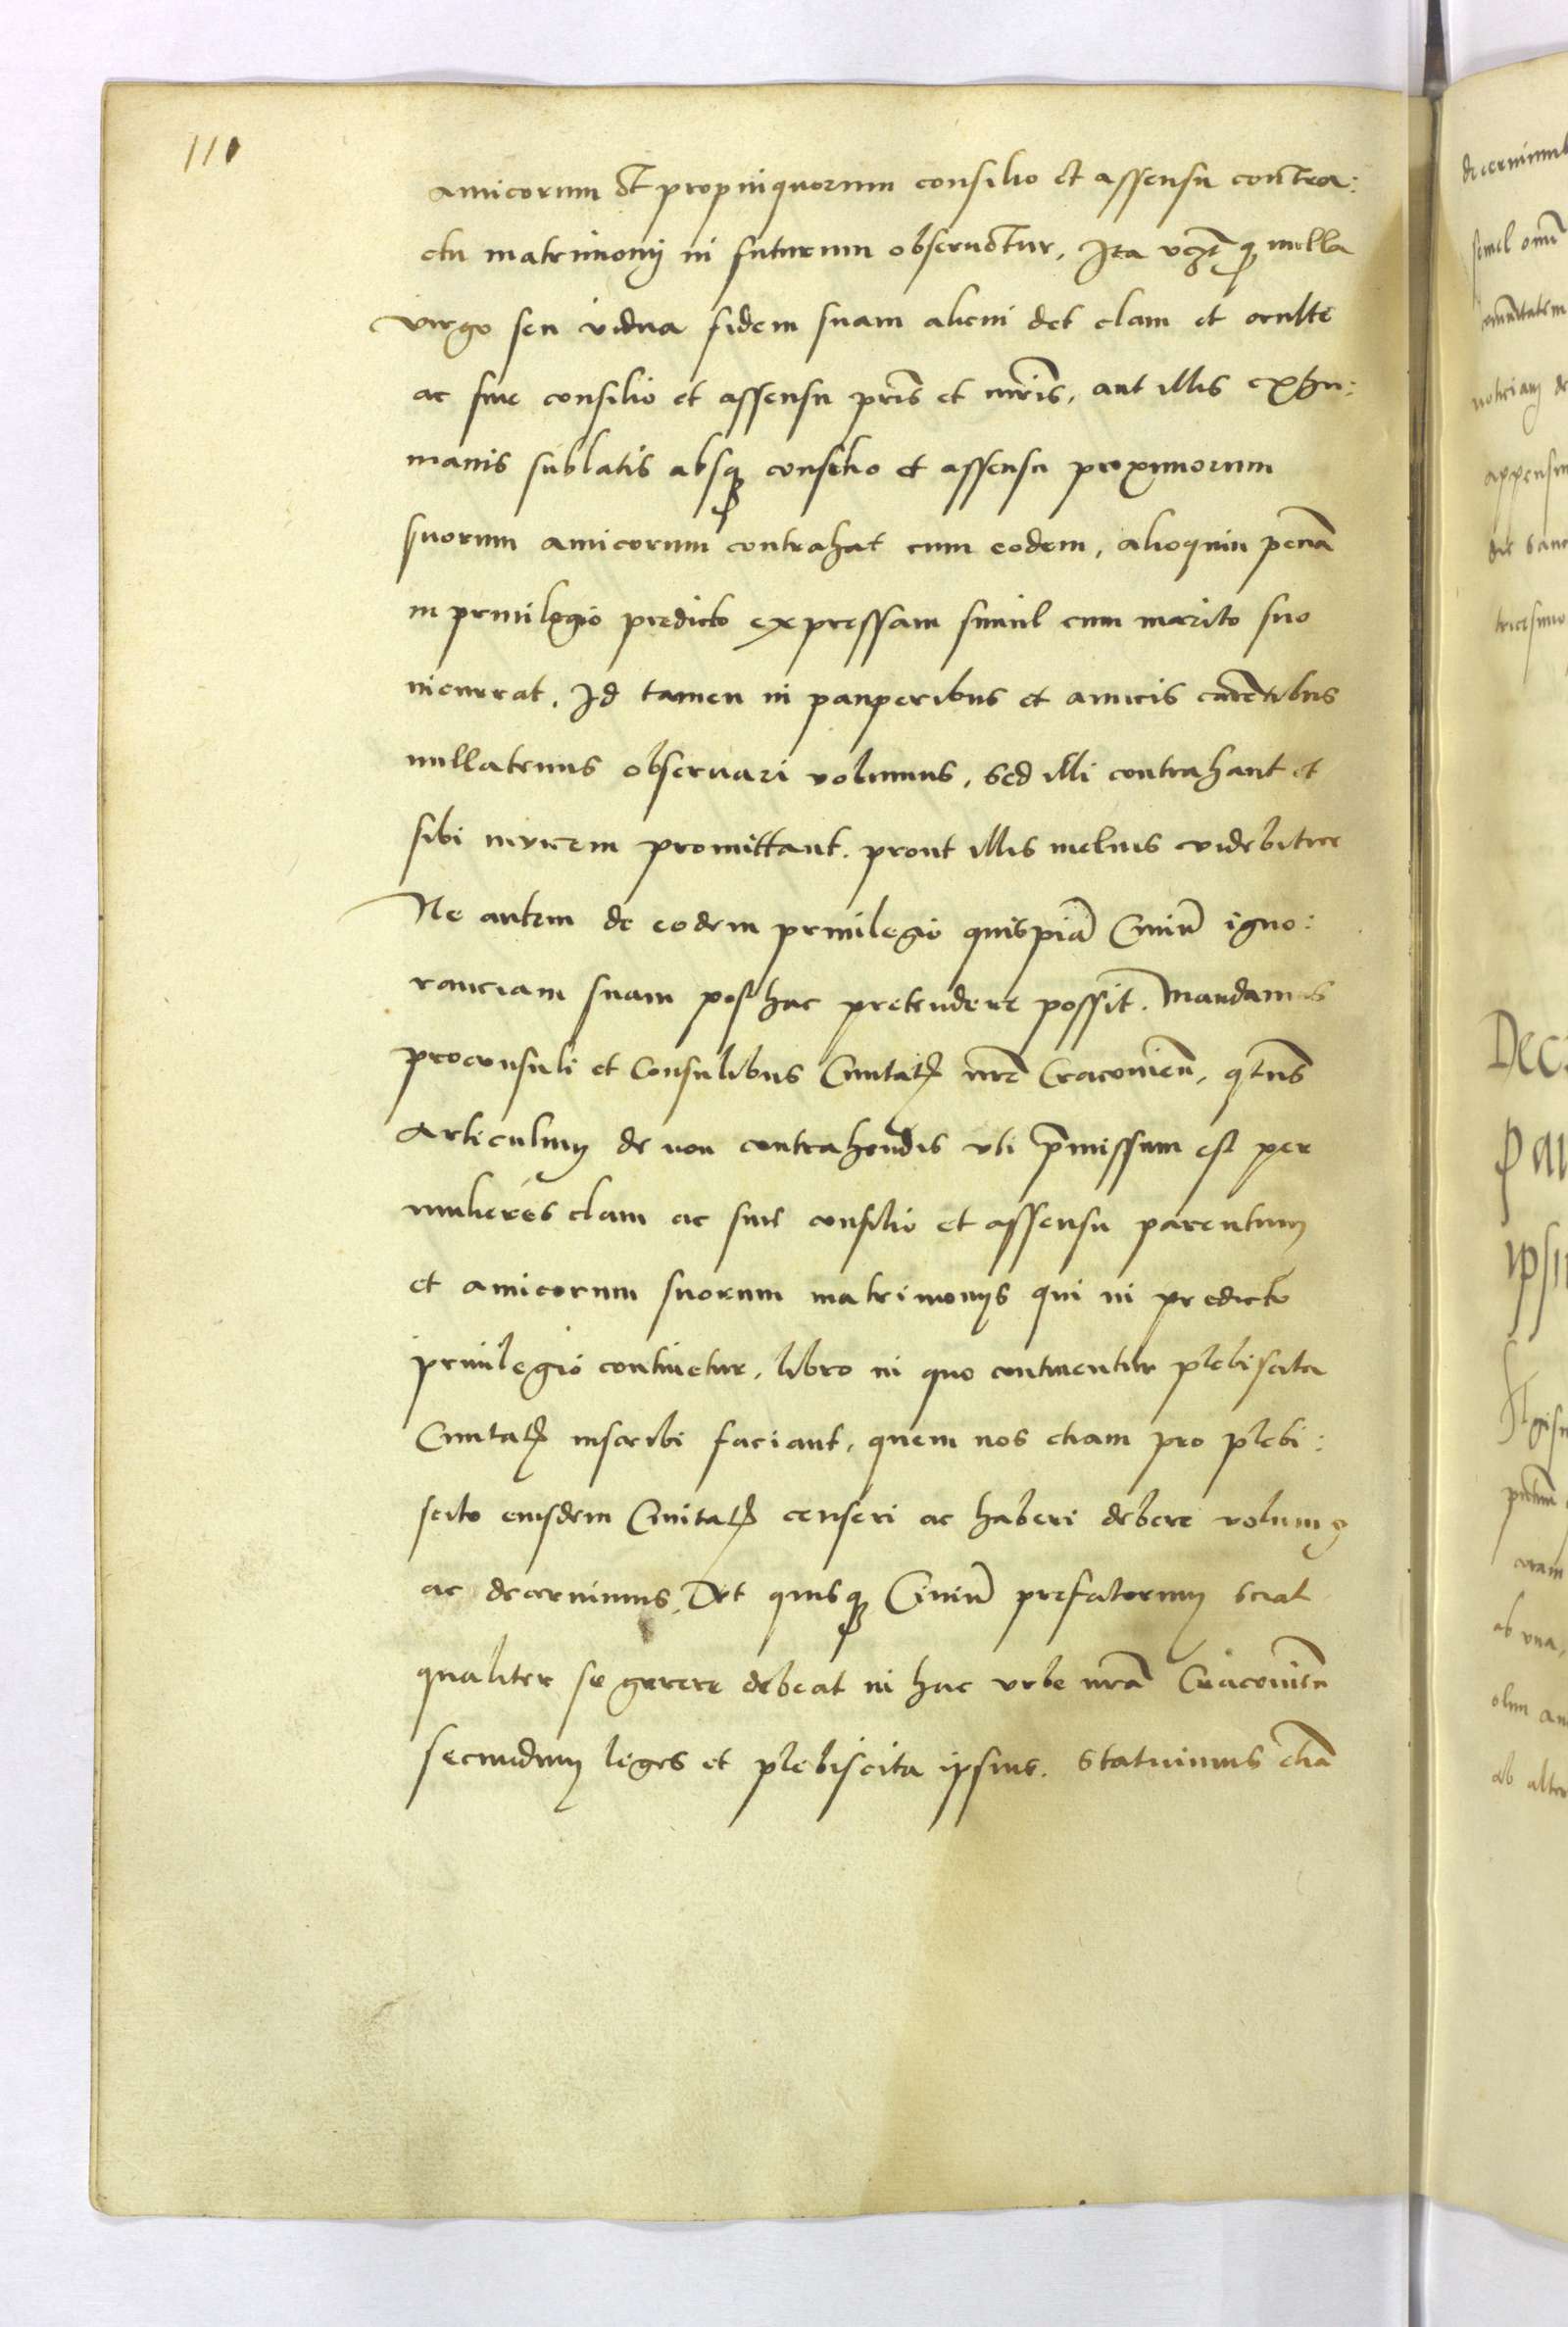 110
amicorum et propinquorum consilio et assensu contra:
ctu matrimonij in futurum obseruetur, Ita vz qꝫ nulla
virgo seu vidua fidem suam alicui det clam et oculte
ac sine consilio et assensu pris et mris, aut illis ex hu:
manis sublatis absqꝫ consilio et assensu proximorum
suorum amicorum contrahat cum eodem, alioquin penã
in priuilegio predicto expressam simul cum marito suo
incurrat, Id tamen in pauperibus et amicis carẽtibus
nullatenus obseruari volumus, sed illi contrahant et
sibi inuicem promittant, prout illis melius videbitur
Ne autem de eodem priuilegio quispiã Ciuiũ igno:
ranciam suam posthac pretendere possit. Mandamus
proconsuli et Consulibus Ciuitatꝭ nrẽ Cracouieñ, qtñs
articulum de non contrahendis vti p̃missum est per
mulieres clam ac sine consilio et assensu parentum
et amicorum suorum matrimonijs qui in predicto
priuilegio continetur, libro in quo continentur plebiscita
Ciuitatꝭ inscribi faciant, quem nos etiam pro plebi:
scito eiusdem Ciuitatꝭ censeri ac haberi debere volumꝰ
ac decernimus, Vt quisqꝫ Ciuiũ prefatorum sciat
qualiter se gerere debeat in hac vrbe nrã Cracouieñ
secundum leges et plebiscita ipsius. Statuimus etiã